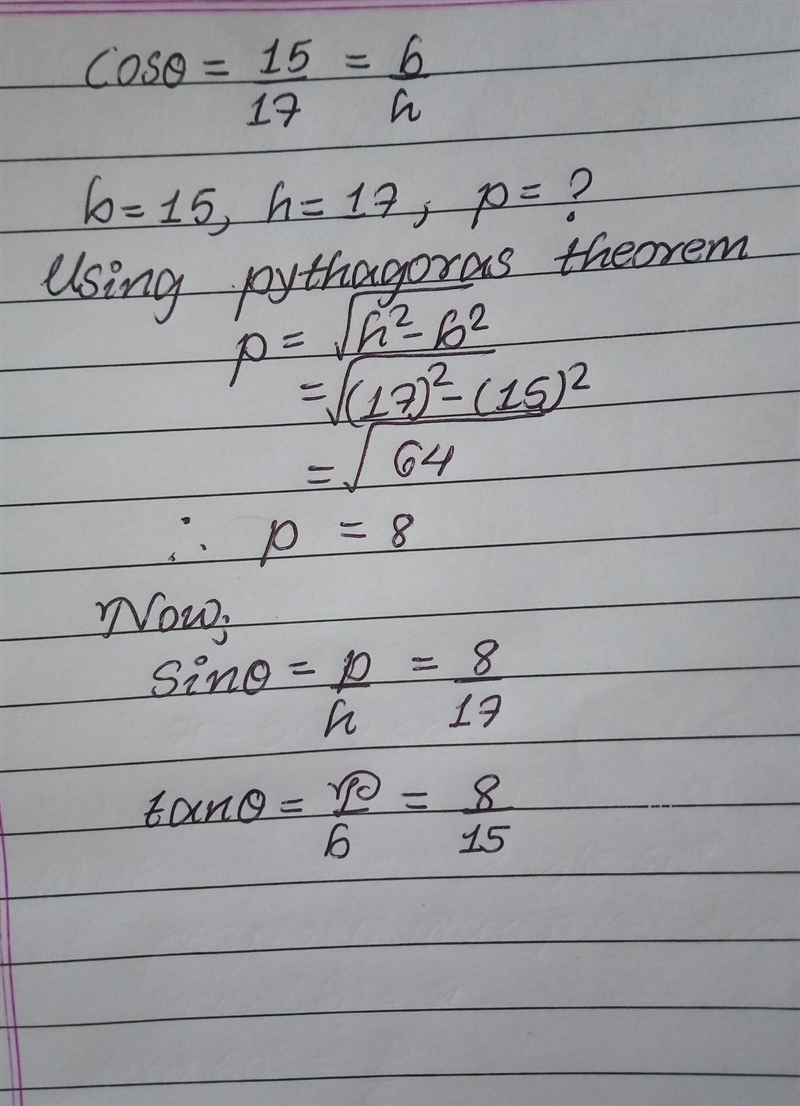 Cosθ = 15/17 = b/h
b=15, h=17, p=?
Using pythagoras theorem
p = √h²-b²
=√(17)²-(15)²
=√64
∴ p = 8
Now;
Sinθ = p/h = 8/17
tanθ = p/b = 8/15